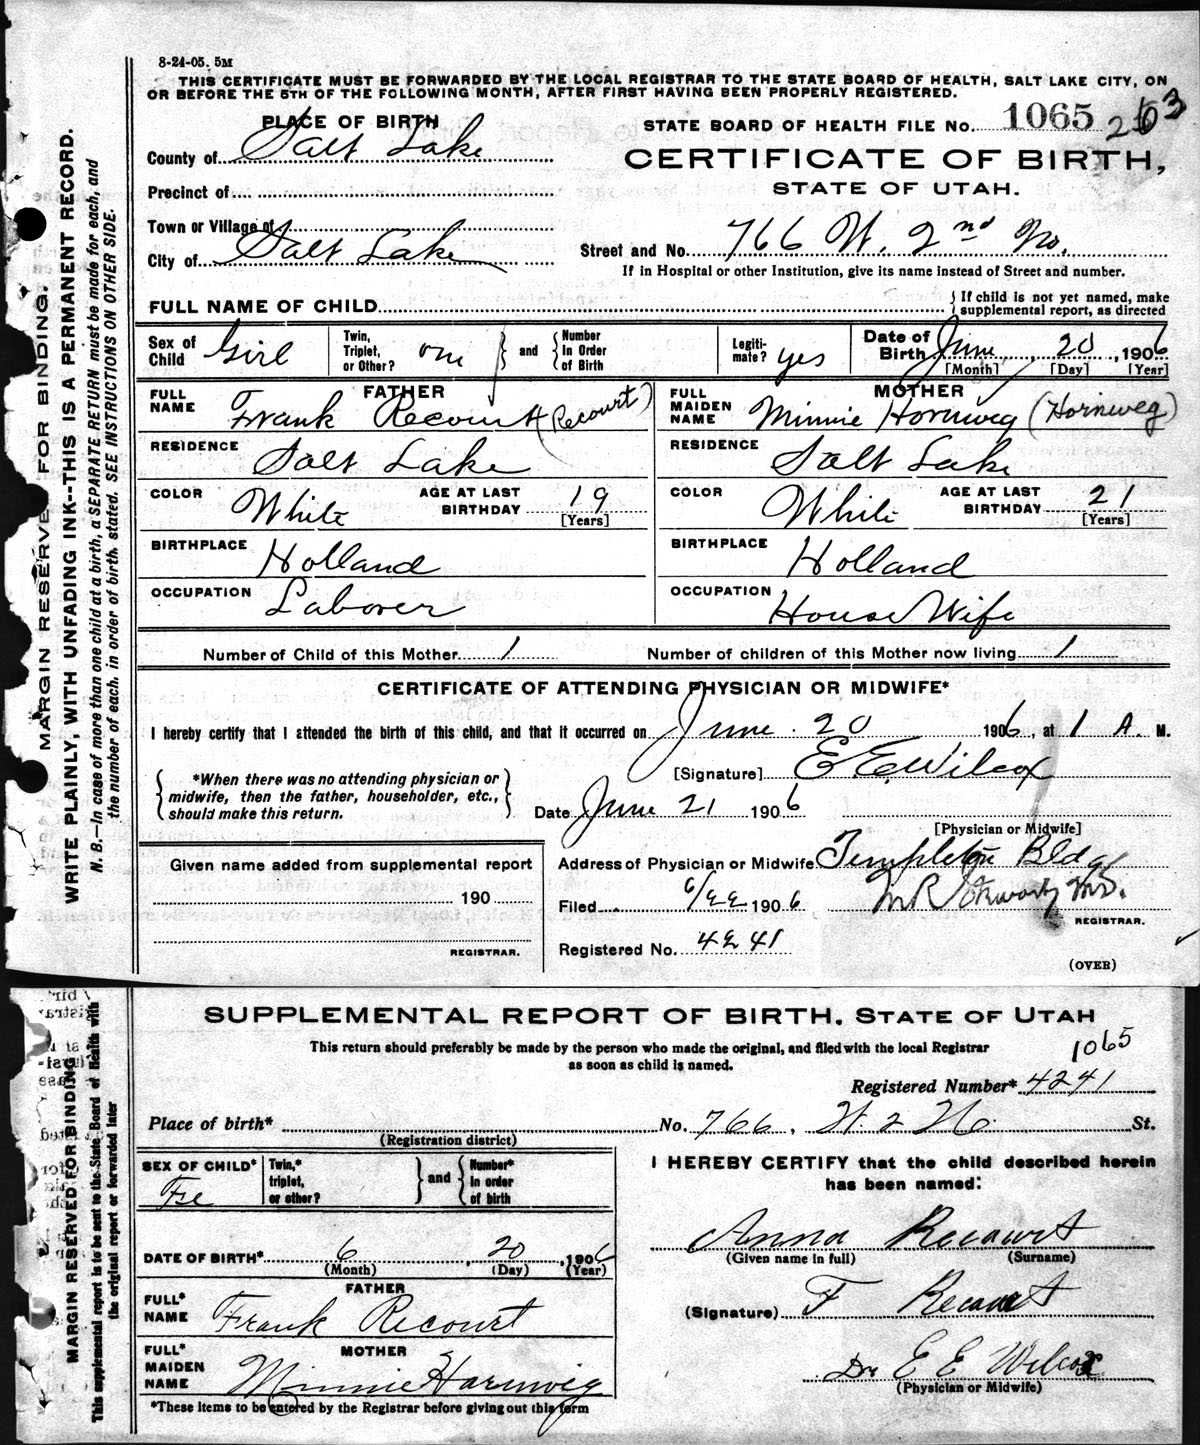 8-24-05. 5M
THIS CERTIFICATE MUST BE FORWARDED BY THE LOCAL REGISTRAR TO THE STATE BOARD OF HEALTH, SALT LAKE CITY, ON
OR BEFORE THE 5TH OF THE FOLLOWING MONTH, AFTER FIRST HAVING BEEN PROPERLY REGISTERED.
PLACE OF BIRTH
STATE BOARD OF HEALTH FILE No. 1065 263
County of Salt Lake
CERTIFICATE OF BIRTH,
STATE OF UTAH.
Precinct of
Town or Village of
City of Salt Lake
Street and No. 766 W. 2nd No.
If in Hospital or other Institution, give its name instead of Street and number.
FULL NAME OF CHILD
{ If child is not yet named, make
supplemental report, as directed
Sex of Child Girl
Twin, Triplet, or Other? one } and { Number In Order of Birth
Legitimate? yes
Date of Birth June 20, 1906
[Month] [Day] [Year]
FATHER
FULL NAME Frank Recourt (Recourt)
RESIDENCE Salt Lake
COLOR White AGE AT LAST BIRTHDAY 19
[Years]
BIRTHPLACE Holland
OCCUPATION Laborer
MOTHER
FULL MAIDEN NAME Minnie Hornweg (Hornweg)
RESIDENCE Salt Lake
COLOR White AGE AT LAST BIRTHDAY 21
[Years]
BIRTHPLACE Holland
OCCUPATION House Wife
Number of Child of this Mother 1 Number of children of this Mother now living 1
CERTIFICATE OF ATTENDING PHYSICIAN OR MIDWIFE*
I hereby certify that I attended the birth of this child, and that it occurred on June 20 1906, at 1 A. M.
{ *When there was no attending physician or
midwife, then the father, householder, etc.,
should make this return. }
[Signature] E E Wilcox
Date June 21 1906
[Physician or Midwife]
Given name added from supplemental report
190
REGISTRAR.
Address of Physician or Midwife Templeton Bldg
Filed 6/22 1906 M.D.
REGISTRAR.
Registered No. 4241
(OVER)
MARGIN RESERVED FOR BINDING.
WRITE PLAINLY, WITH UNFADING INK--THIS IS A PERMANENT RECORD.
N. B.—In case of more than one child at a birth, a SEPARATE RETURN must be made for each, and
the number of each, in order of birth, stated. SEE INSTRUCTIONS ON OTHER SIDE.
SUPPLEMENTAL REPORT OF BIRTH. STATE OF UTAH
This return should preferably be made by the person who made the original, and filed with the local Registrar
as soon as child is named.
1065
Registered Number* 4241
Place of birth* No. 766, W. 2 No. St.
(Registration district)
SEX OF CHILD* Fe
Twin,* triplet, or other? } and { Number* In order of birth
I HEREBY CERTIFY that the child described herein
has been named:
Anna Recourt
(Given name in full) (Surname)
DATE OF BIRTH* 6, 20, 1906
(Month) (Day) (Year)
FATHER
FULL* NAME Frank Recourt
(Signature) F Recourt
MOTHER
FULL* MAIDEN NAME Minnie Harnwig
Dr E E Wilcox
(Physician or Midwife)
*These items to be entered by the Registrar before giving out this form
MARGIN RESERVED FOR BINDING
This supplemental report is to be sent to the State Board of Health with
the original report or forwarded later